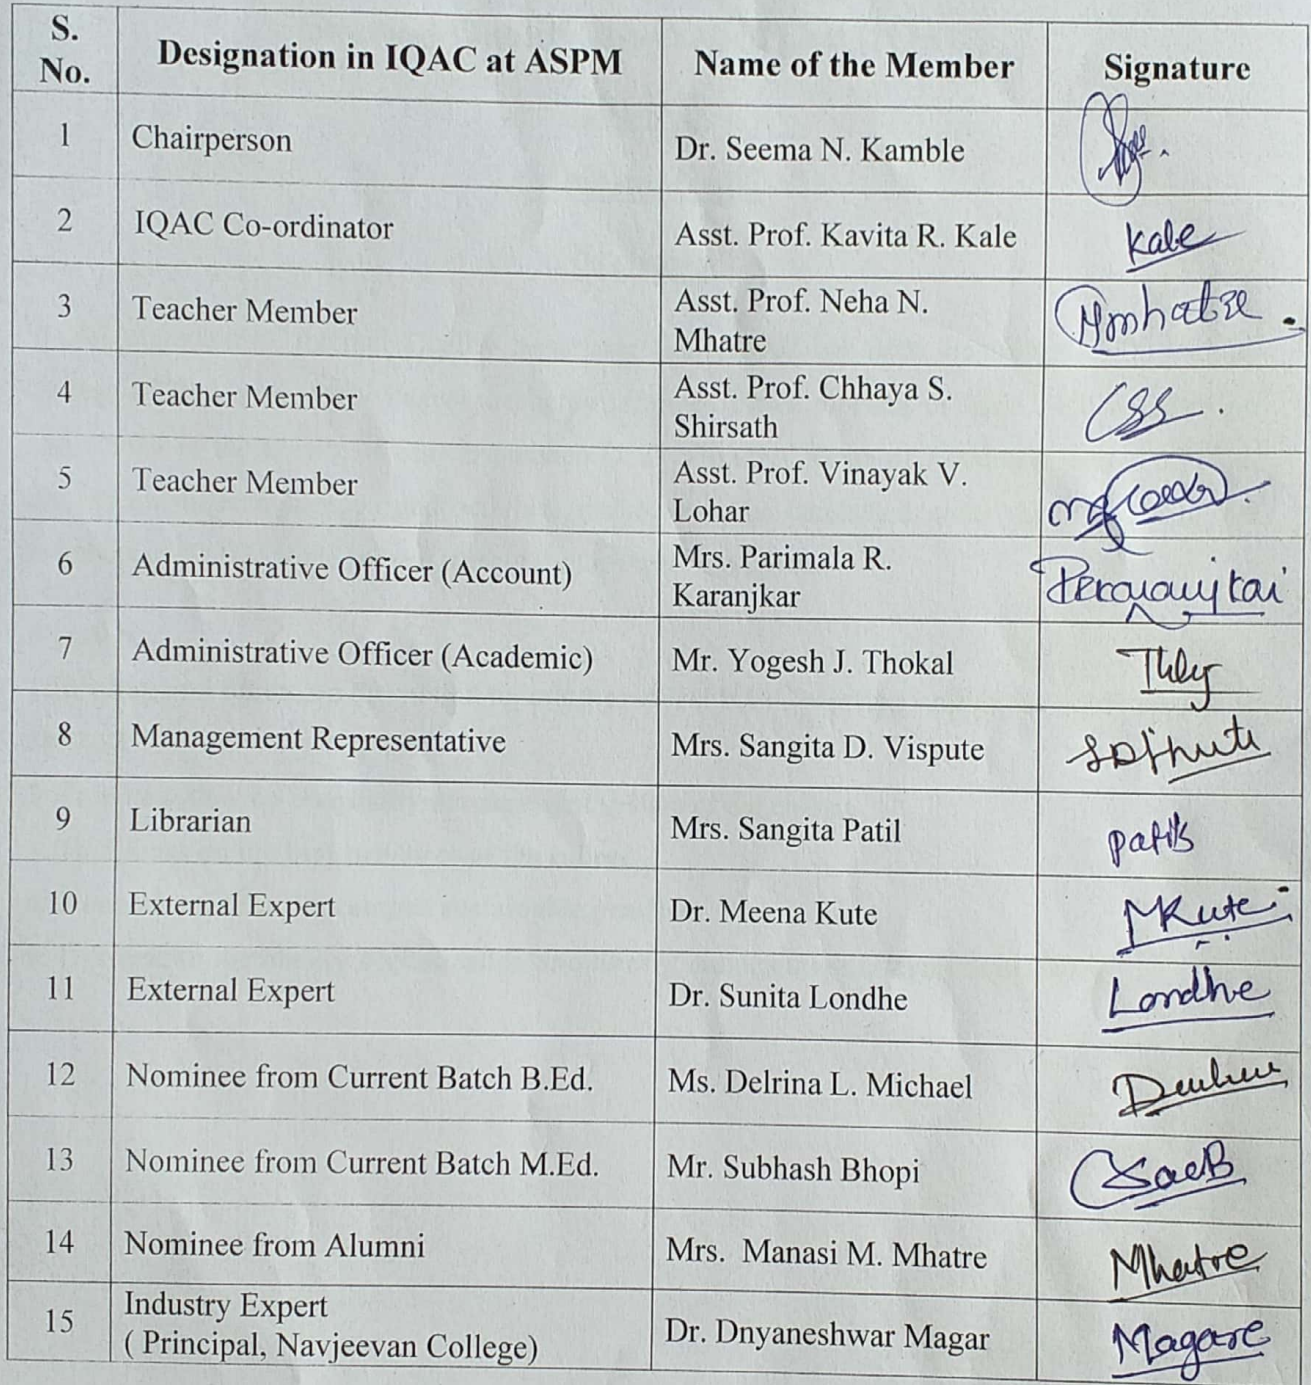 S. No. Designation in IQAC at ASPM Name of the Member Signature
1 Chairperson Dr. Seema N. Kamble
2 IQAC Co-ordinator Asst. Prof. Kavita R. Kale Kale
3 Teacher Member Asst. Prof. Neha N. Mhatre Nmhatre
4 Teacher Member Asst. Prof. Chhaya S. Shirsath CSS.
5 Teacher Member Asst. Prof. Vinayak V. Lohar
6 Administrative Officer (Account) Mrs. Parimala R. Karanjkar
7 Administrative Officer (Academic) Mr. Yogesh J. Thokal
8 Management Representative Mrs. Sangita D. Vispute
9 Librarian Mrs. Sangita Patil
10 External Expert Dr. Meena Kute MKute
11 External Expert Dr. Sunita Londhe Londhe
12 Nominee from Current Batch B.Ed. Ms. Delrina L. Michael
13 Nominee from Current Batch M.Ed. Mr. Subhash Bhopi
14 Nominee from Alumni Mrs. Manasi M. Mhatre Mhatre
15 Industry Expert ( Principal, Navjeevan College) Dr. Dnyaneshwar Magar Magare